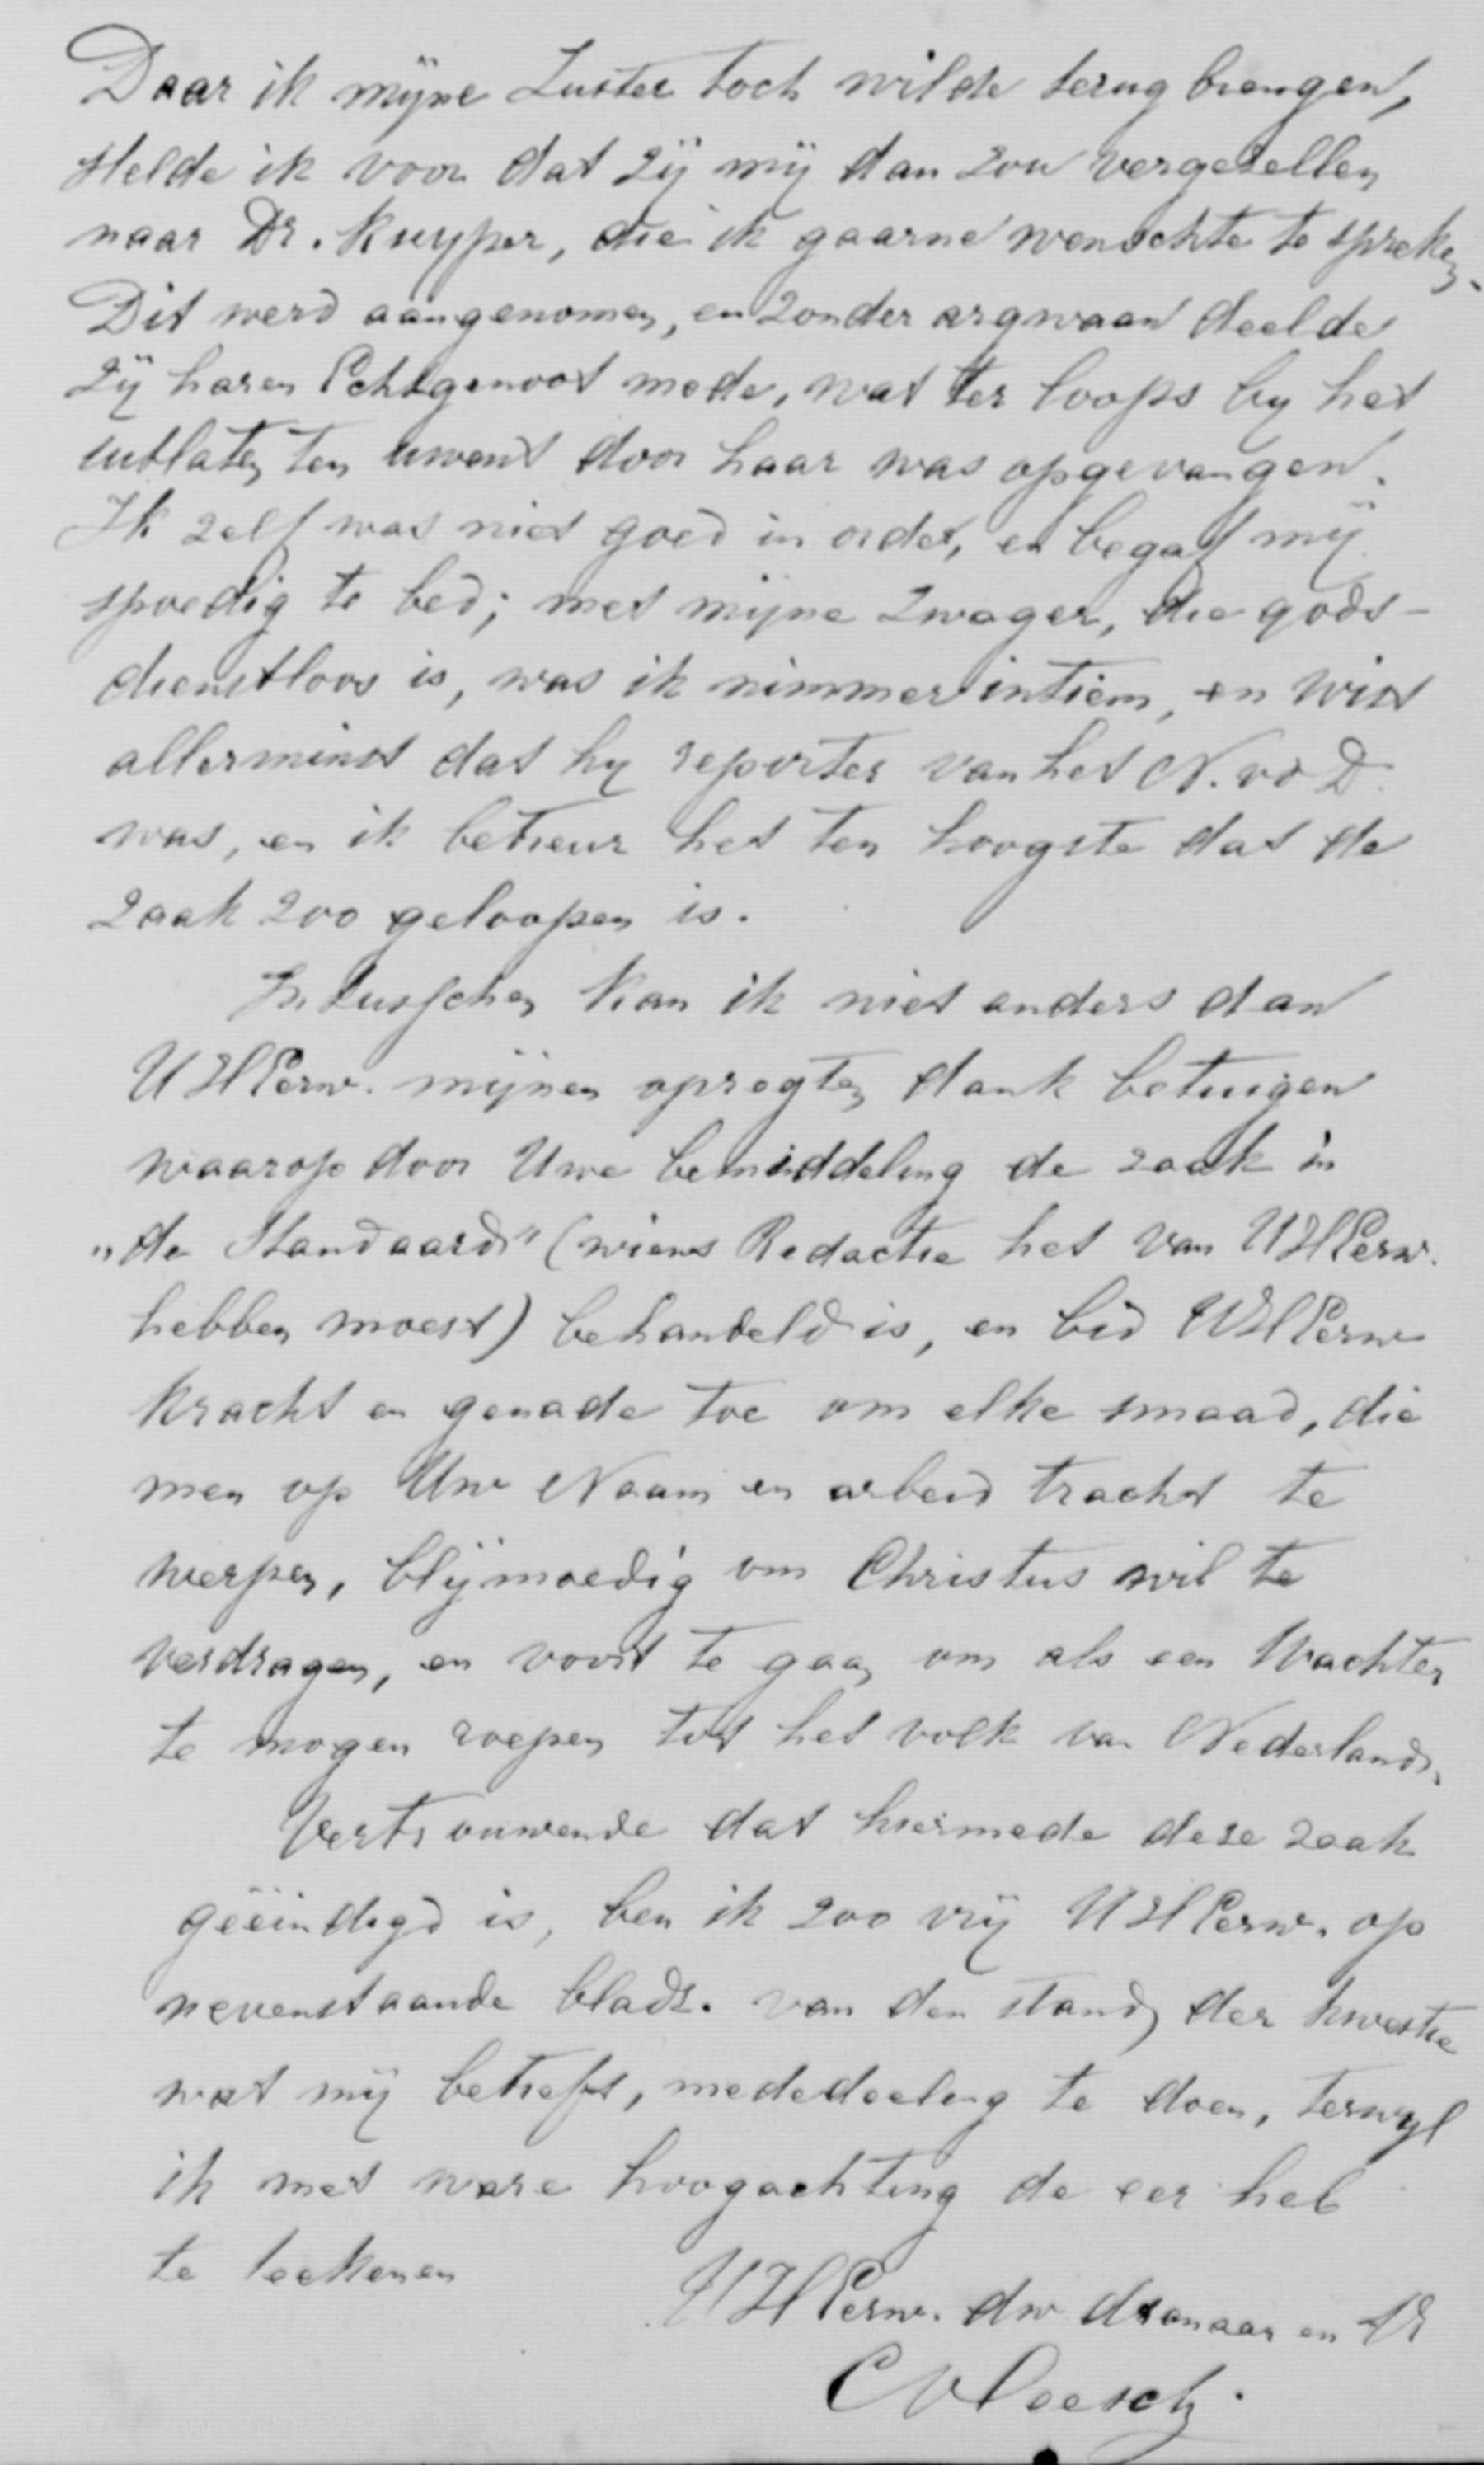 Daar ik mijne Zuster toch wilde terug brengen,
stelde ik voor dat zij mij dan zou vergezellen
naar Dr. Kuyper, die ik gaarne wenschte te spreken.
Dit werd aangenomen, en zonder argwaan deelde
zij haren Echtgenoot mede, wat ter loops by het
uitlaten ten uwent door haar was opgevangen.
Ik zelf was niet goed in order, en begaf mij
spoedig te bed; met mijne zwager, die gods-
dienstloos is, was ik nimmer intiem, en wist
allerminst dat hy reporter van het N. v d D.
was, en ik betreur het ten hoogste dat de
zaak zoo geloopen is.
Intusschen kan ik niet anders dan
UHEerw. mijnen opregten dank betuigen
waarop door Uwe bemiddeling de zaak in
„de Standaard" (wiens Redactie het van UHEerw.
hebben moest) behandeld is, en bid UHEerw
kracht en genade toe om elke smaad, die
men op Uw Naam en arbeid tracht te
werpen, blijmoedig om Christus wil te
verdragen, en voort te gaan om als een Wachter
te mogen roepen tot het volk van Nederland.
Vertrouwende dat hiermede deze zaak
geëindigd is, ben ik zoo vrij UHEerw. op
nevenstaande bladz. van den stand der kwestie
wat mij betreft, mededeeling te doen, terwyl
ik met ware hoogachting de eer heb
te teekenen
UHEerw. dw dienaar en Br